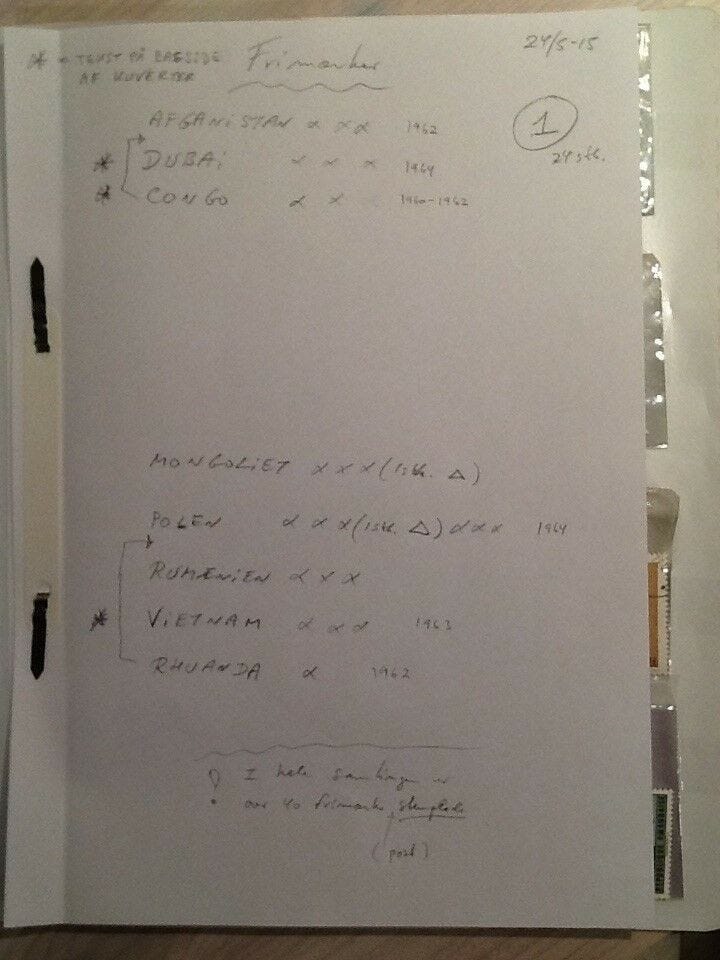 * = TEKST PÅ BAGSIDE
AF KUVERTER
Frimærker
24/5-15
1
24 stk.
AFGANISTAN x x x 1962
* DUBAI x x x 1964
* CONGO x x 1960-1962
MONGOLIET x x x (1 stk. △)
POLEN x x x (1 stk. △) x x x 1964
RUMÆNIEN x x x
* VIETNAM x x x 1963
RHUANDA x 1962
! I hele samlingen er
over 40 frimærker stemplede
(post)